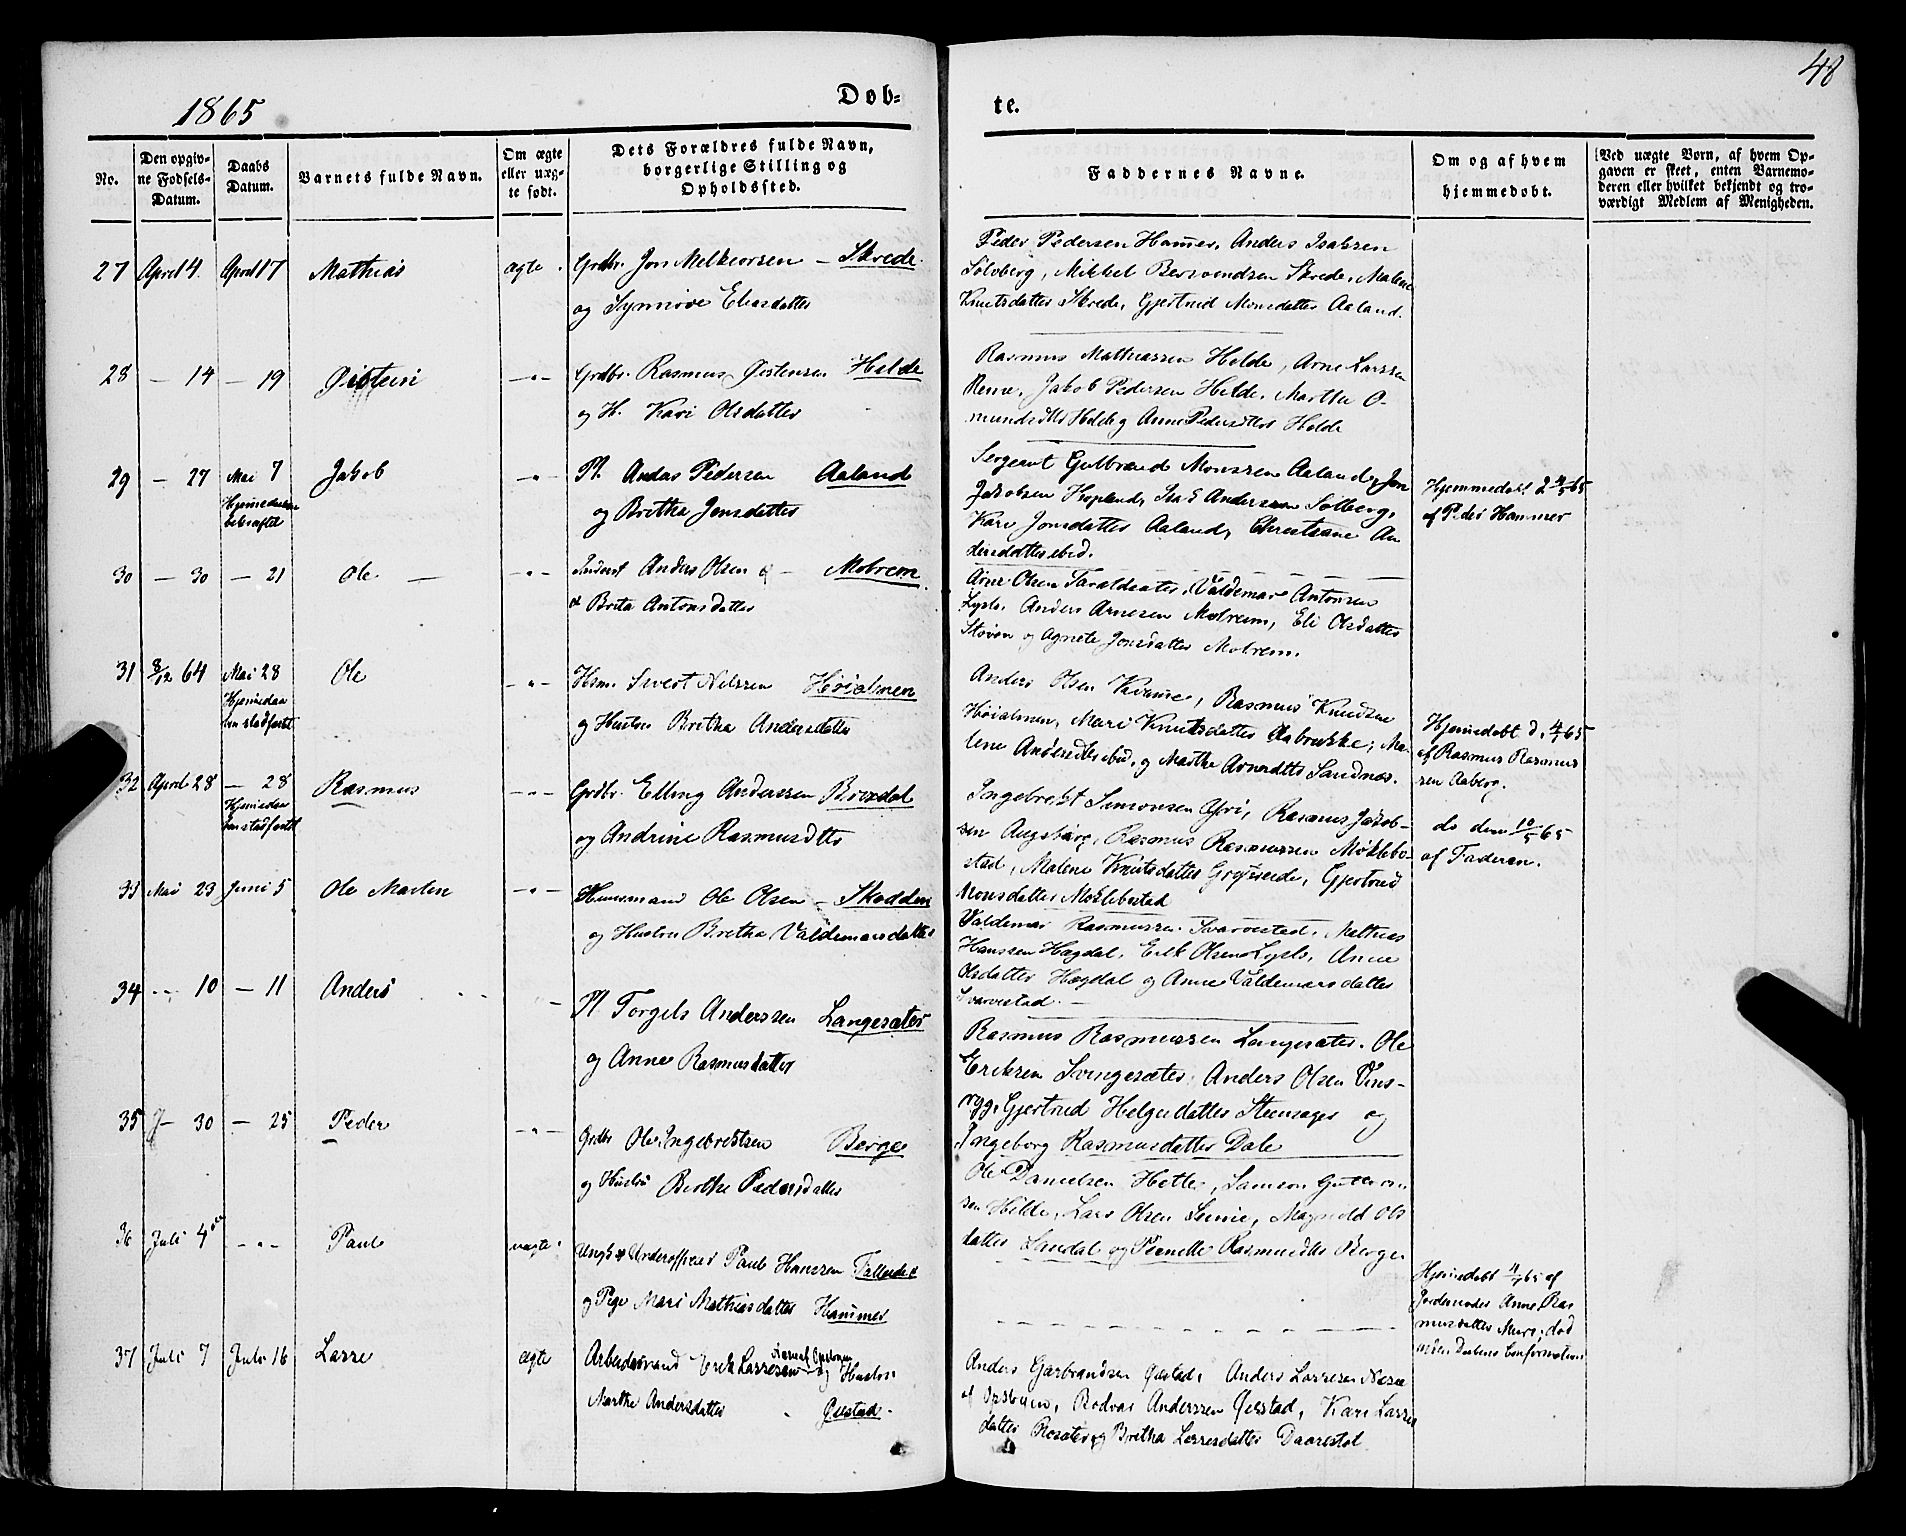 48
1865
Døb=
te.
No.
Den opgiv-
ne Fødsels-
Datum.
Daabs
Datum.
Barnets fulde Navn.
Om ægte
eller uæg-
te født.
Dets Forældres fulde Navn,
borgerlige Stilling og
Opholdssted.
Faddernes Navne.
Om og af hvem
hjemmedøbt.
Ved uægte Børn, af hvem Op-
gaven er skeet, enten Barnemo-
deren eller hvilket bekjendt og tro-
værdigt Medlem af Menigheden.
27 April 4. April 17 Mathias ægte Grdbr. Jon Melkiorsen – Skrede.
og Synnøve Eliasdatter
Peder Pedersen Hamer, Anders Isaksen
Solvberg, Mikkel Bersvendsen Skrede, Malene
Knutsdatter Skrede, Gjertrud Monsdatter Aaland.
28 — 14 — 19 Øistein —"— Grdbr. Rasmus Øistensen Hilde
og H. Kari Olsdatter
Rasmus Mathiassen Hilde, Arne Larssen
Reme, Jakob Pedersen Hilde, Marthe O-
mundsdtter Hilde og Anne Pedersdtter Hilde
29 — 27 Mai 7 Jakob —"— Pl. Andas Pedersen Aaland
Hjemmedaaben
bekræftet
og Brithe Jonsdatter
Sergeant Gulbrand Monssen Aaland, Jon
Jakobsen Hopland, Isak Anderssen Solberg,
Kari Jonsdatter Aaland, Christiane An
dersdatter ibid.
Hjemmedøbt d 4/5 65
af Peder Hammer
30 — 30 — 21 Ole — —"— Anders Olsen — Molrem
& Brita Antonsdatter
Arne Olsen Taraldsæter, Valdemar Antonsen
Lysb, Anders Arnesen Molreim, Eli Olsdatter
Støven og Agnete Jonsdatter Molrem.
31 8/12 64 Mai 28 Ole —"— Hsm. Sivert Nilssen Høialmen
Hjemmedaa
ben stadfæst
og Hustru Bretha Andersdatter
Anders Olsen Kvame, Rasmus Knudsen
Høialmen, Mari Knutsdatter Aabrække, Ma-
lene ibid. og Marthe Arnesdttr Sandnes.
Hjemmedøbt d. 4/1 65
af Rasmus Rasmus
sen Aaberg.
32 April 28 — 28 Rasmus —"— Grdbr. Elling Anderssen Brixdal
Hjemmedaa
ben stadfæst
og Andrine Rasmusdtter
Ingebrikt Simonsen Yri, Rasmus Jakob-
sen Augsburg, Rasmus Rasmussen Møklebo-
stad, Malene Knutsdatter, Gjertrud
Monsdatter Møklebostad
do den 10/5 65
af Faderen.
33 Mai 23 Juni 5 Ole Martin —"— Huusmand Ole Olsen – Skodden
og Hustru Bretha Valdemarsdatter
Valdemar Rasmussen Svarvestad, Mathias
Hanssen Hægdal, Erik Olsen Lysb, Anne
Olsdatter Hægdal og Anne Valdemarsdatter
Svarvestad.
34 — 10 — 11 Anders "— Pl Torgels Anderssen Langesæter
og Anne Rasmusdatter
Rasmus Rasmussen Langesæter. Ole
Eriksen Svingesæter, Anders Olsen Vins-
ryg, Gjertrud Helgesdatter Steensager og
Ingeborg Rasmusdatter Dale
35 J— 30 — 25 Peder —"— Grdbr Ole Ingebretsen Berge
og Hustru Birthe Pedersdatter
Ole Danielsen Hetle, Samson Guttorm
sen Hilde, Lars Olsen Sunne, Magnild Ols
datter Sandal og Pernille Rasmusdtter Berge
36 Juli 4 —"— Paul uægte Ungk. & Underofficeer Paul Hanssen
og Pige Mari Mathiasdatter Hammer
Hjemmedøbt 4/7 65 af
Jordemoder Anne Ras
musdatter Muri, død
inden Daabens Confirmation
37 Juli 7 Juli 16 Larse ægte Arbeidsmand Erik Larsesen og Hustru
Marthe Andersdatter Øiestad.
Anders Garbrandsen Øiestad, Anders Larsesen Næse
af Opstryn, Rodvar Anderssen Øiestad, Kari Larse
datter og Bretha Larsesdatter